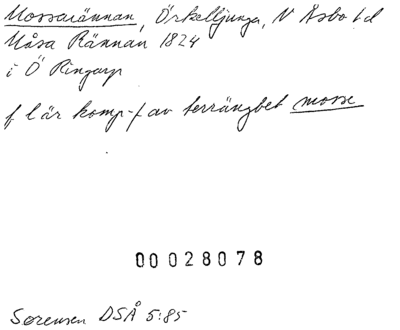 Mossarännan, Örkelljunga, N Åsbo hd
Måsa Rännan 1824
i Ö Ringarp
f l är komp-f av terrängbet mosse
00028078
Sørensen DSÅ 5:85